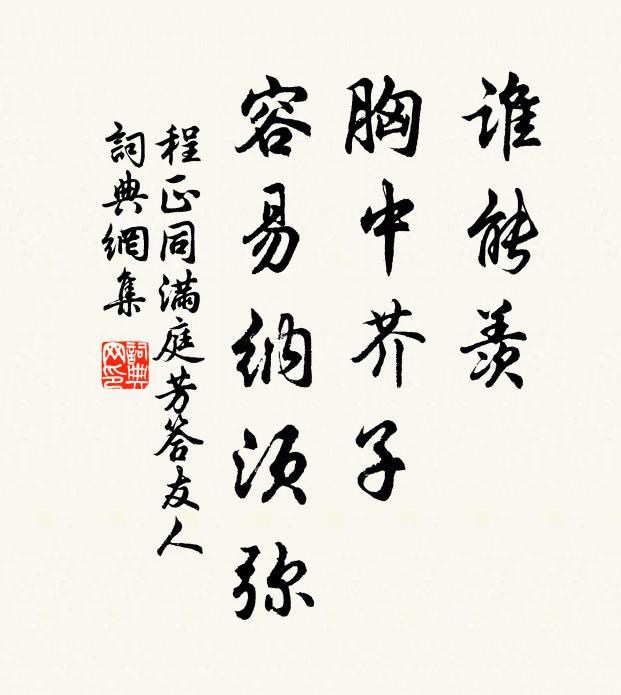 谁能羡
胸中芥子
容易纳须弥
程正同满庭芳答友人
詞典網集
詞典网印